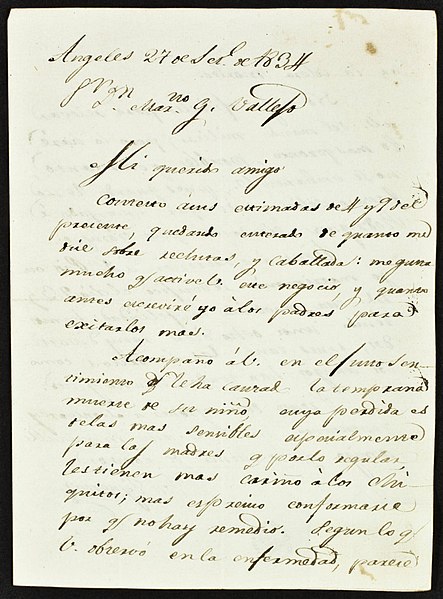 Angeles 27 de Set.e de 1834
Sr. Dn. Mar.no G. Vallejo
Mi querido amigo
Contexto á sus estimadas de 4 y 9 del
presente, quedando enterado de quanto me
dice sobre reclutas, y caballada: me gusta
mucho q active V. ese negocio, y quanto
antes escriviré yo á los padres para
exitarlos mas.
Acompaño á V. en el justo sen-
timiento q le ha causado la temprana
muerte de su niño, cuya perdida es
de las mas sensibles especialmente
para las madres q por lo regular
les tienen mas cariño á los chi
quitos; mas es preciso conformarse
por q no hay remedio. Segun lo q
V. observó en la enfermedad, parece